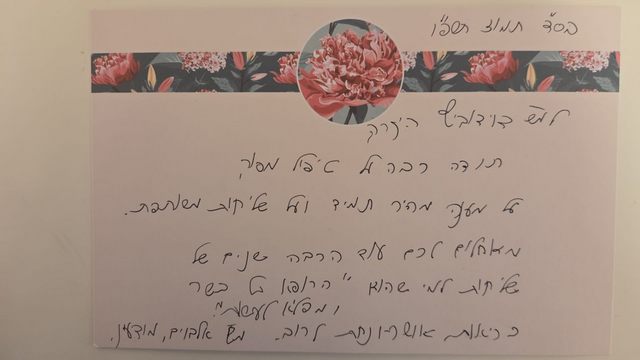 בס"ד תמוז תשפ"ו
למש' דוידוביץ היקרה
תודה רבה על טיפול מסור,
על מענה מהיר תמיד ועל שליחות משותפת.
מאחלים לכם עוד הרבה שנים של
שליחות למי שהוא "הרופא כל בשר
ומפליא לעשות".
בריאות אושר ונחת לרוב. מש' אלבוים, מודיעין.